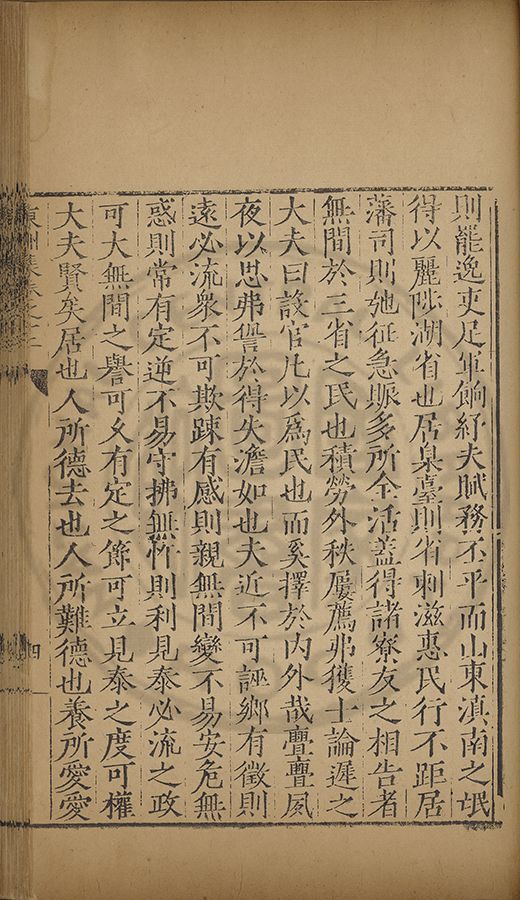 則罷逸吏足軍餉紓夫賦務丕平而山東滇南之氓
得以麗陟湖省也居臬臺則省刺滋惠民行不距居
藩司則弛征急賑多所全活蓋得諸寮友之相告者
無間於三省之民也積勞外秩屢薦弗獲士論遲之
大夫曰設官凡以爲民也而奚擇於内外哉亹亹夙
夜以思弗訾於得失澹如也夫近不可誣鄉有徵則
遠必流衆不可欺踈有感則親無間變不易安危無
惑則常有定逆不易守拂無忻則利見泰必流之政
可大無間之譽可久有定之節可立見泰之度可權
大夫賢矣居也人所德去也人所難德也養所愛愛
東洲集卷之十二
四